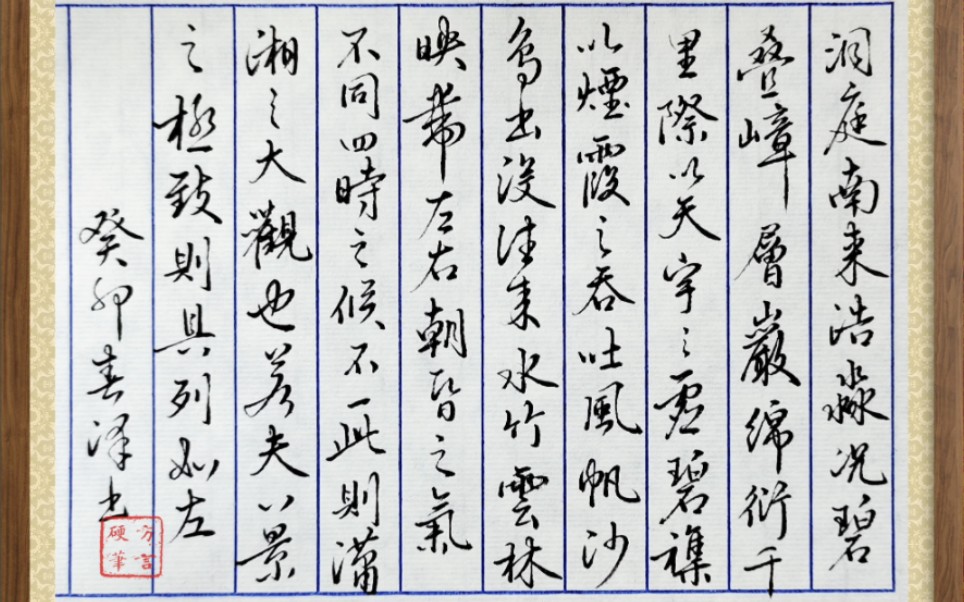 洞庭南来浩淼况碧
叠嶂層巖綿衍千
里際以天宇之虛碧襍
以煙霞之吞吐風帆沙
鳥出没往来水竹雲林
映帶左右朝昏之氣
不同四時之候不一此則瀟
湘之大觀也若夫八景
之極致則具列如左
癸卯春澤书
方言硬筆